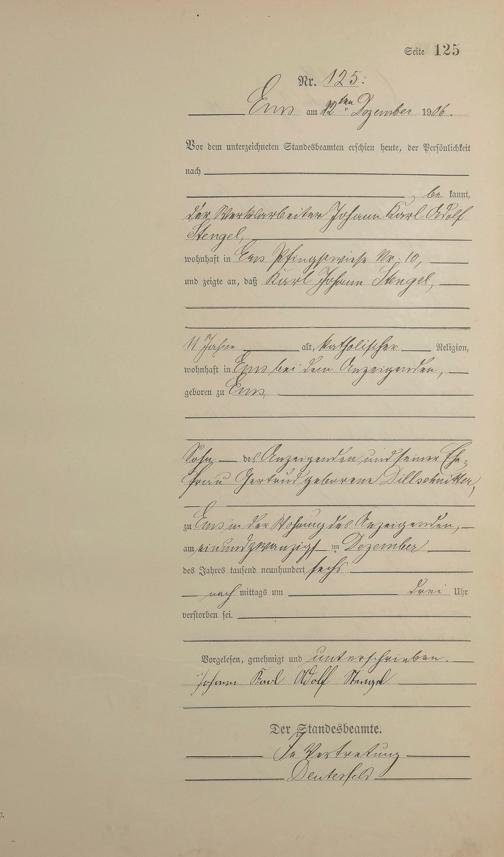 Seite 125
Nr. 125.
Ems am 22ten Dezember 1906.
Vor dem unterzeichneten Standesbeamten erschien heute, der Persönlichkeit
nach
be kannt,
der Werkarbeiter Johann Karl Adolf
Stengel,
wohnhaft in Ems Pfingstwiese Nr. 10,
und zeigte an, daß Karl Johann Stengel,
11 Jahre alt, katholischer Religion,
wohnhaft in Ems bei dem Anzeigenden,
geboren zu Ems,
Sohn des Anzeigenden und seiner Ehe-
frau Gertrud geborene
zu Ems in der Wohnung des Anzeigenden,
am einundzwanzigsten Dezember
des Jahres tausend neunhundert sechs
nach mittags um drei Uhr
verstorben sei.
Vorgelesen, genehmigt und unterschrieben.
Johann Karl Adolf Stengel
Der Standesbeamte.
In Vertretung